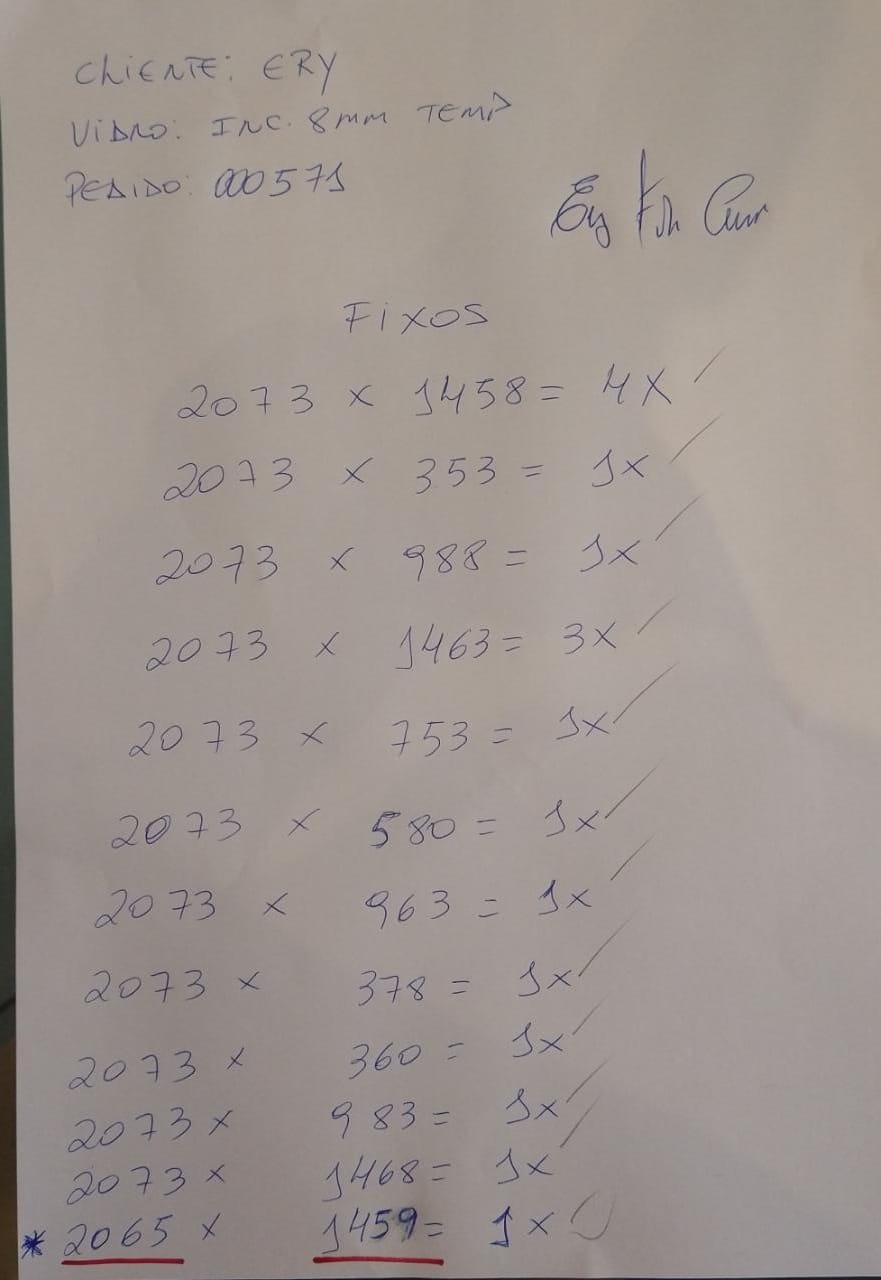 CLIENTE: ERY
VIDRO: INC. 8mm TEMP
PEDIDO: 000571
FIXOS
2073 x 1458 = 4x
2073 x 353 = 1x
2073 x 988 = 1x
2073 x 1463 = 3x
2073 x 753 = 1x
2073 x 580 = 1x
2073 x 963 = 1x
2073 x 378 = 1x
2073 x 360 = 1x
2073 x 983 = 1x
2073 x 1468 = 1x
* 2065 x 1459 = 1x